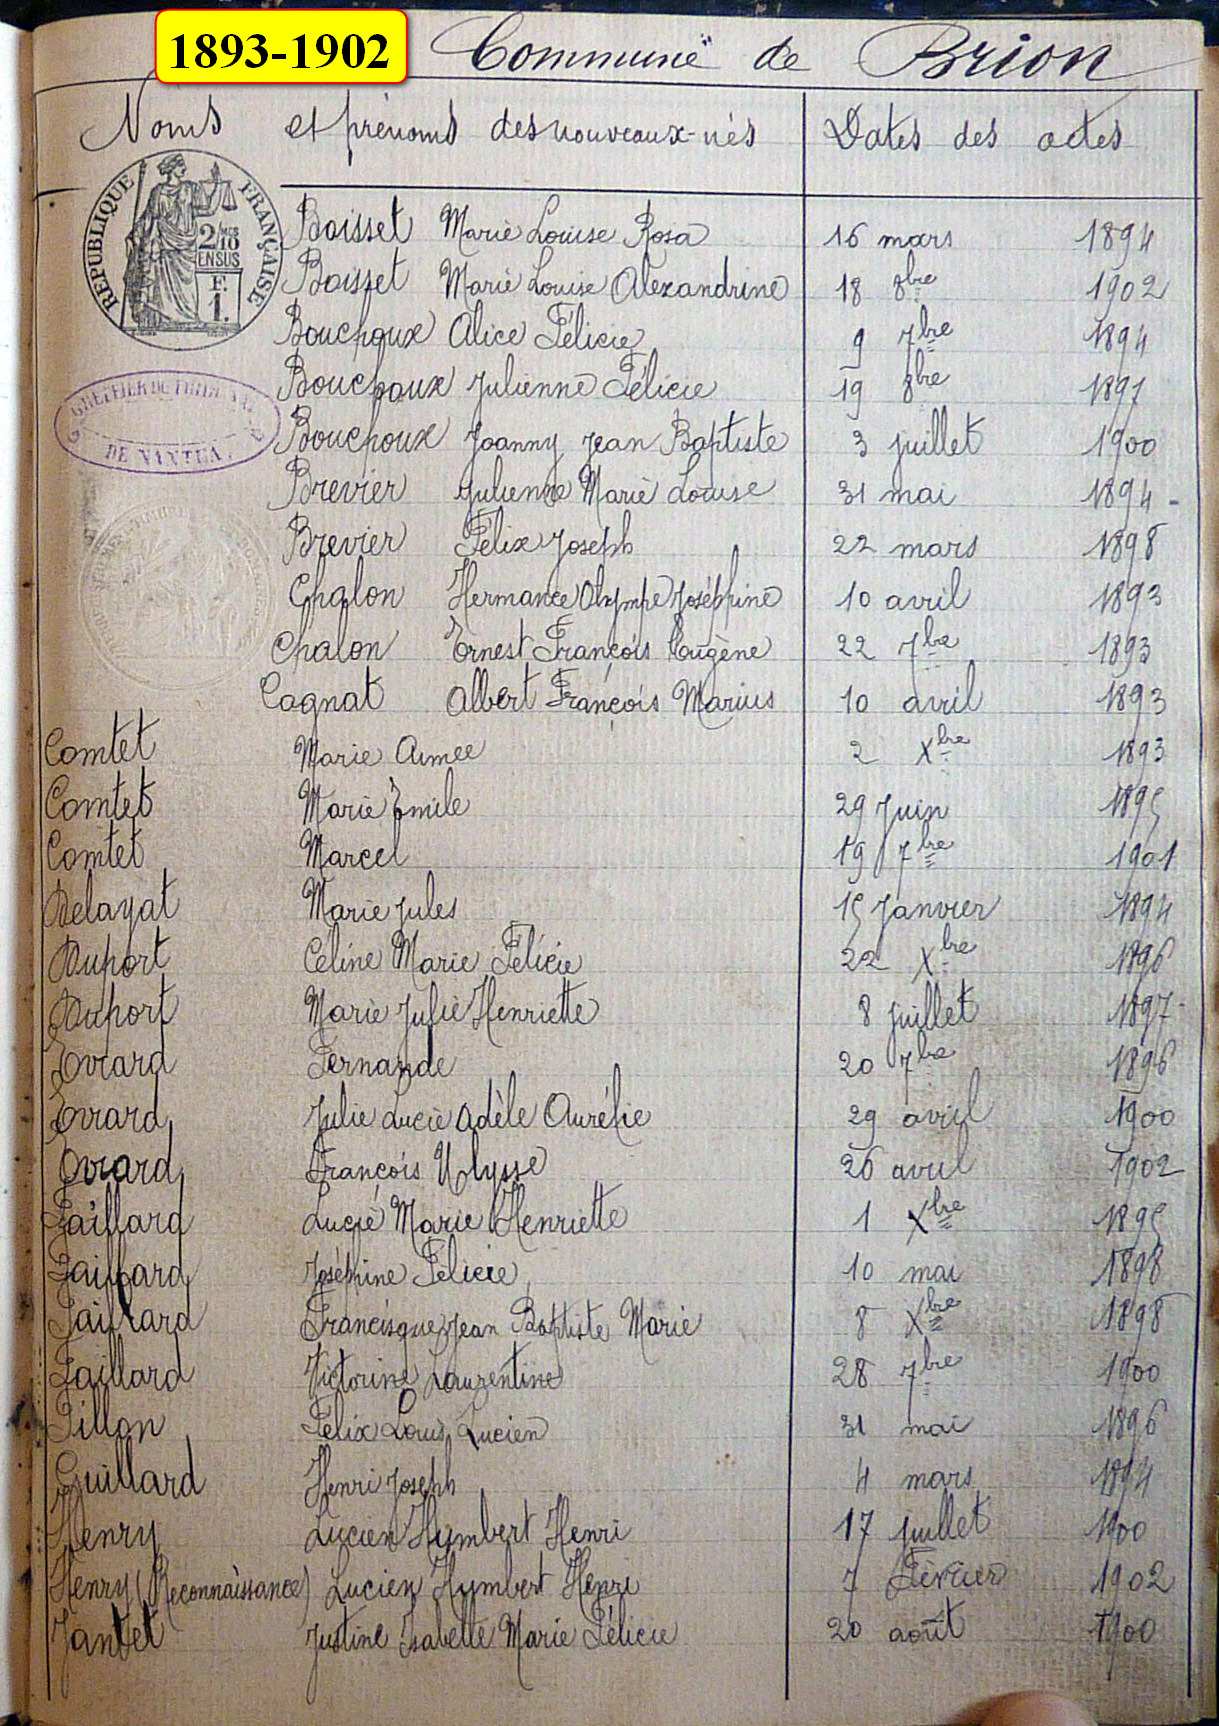 1893-1902
Commune de Brion
Noms et prénoms des nouveaux-nés Dates des actes
RÉPUBLIQUE FRANÇAISE
2/10 EN SUS
F. 1.
DE NANTUA
Boisset Marie Louise Rosa 16 mars 1894
Boisset Marie Louise Alexandrine 18 8bre 1902
Bouchoux Alice Félicie 9 7bre 1894
Bouchoux Julienne Félicie 19 8bre 1897
Bouchoux Joanny Jean Baptiste 3 juillet 1900
Brevier Julienne Marie Louise 31 mai 1894
Brevier Félix Joseph 22 mars 1898
Chalon Hermance Olympe Joséphine 10 avril 1893
Chalon Ernest François Eugène 22 7bre 1893
Cagnat Albert François Marius 10 avril 1893
Comtet Marie Aimee 2 Xbre 1893
Comtet Marie Emile 29 Juin 1895
Comtet Marcel 19 7bre 1901
Delayat Marie Jules 15 Janvier 1894
Duport Céline Marie Félicie 22 Xbre 1896
Duport Marie Julie Henriette 8 juillet 1897
Evrard Fernande 20 7bre 1896
Evrard Julie Lucie Adèle Aurélie 29 avril 1900
Evrard François Ulysse 26 avril 1902
Gaillard Lucie Marie Henriette 1 Xbre 1895
Gaillard Joséphine Félicie 10 mai 1898
Gaillard Francisque Jean Baptiste Marie 8 Xbre 1898
Gaillard Victorine Laurentine 28 7bre 1900
Gillon Félix Louis Lucien 31 mai 1896
Guillard Henri Joseph 4 mars 1894
Henry Lucien Humbert Henri 17 juillet 1900
Henry (Reconnaissance) Lucien Humbert Henri 7 Février 1902
Jantet Justine Isabelle Marie Félicie 20 août 1900